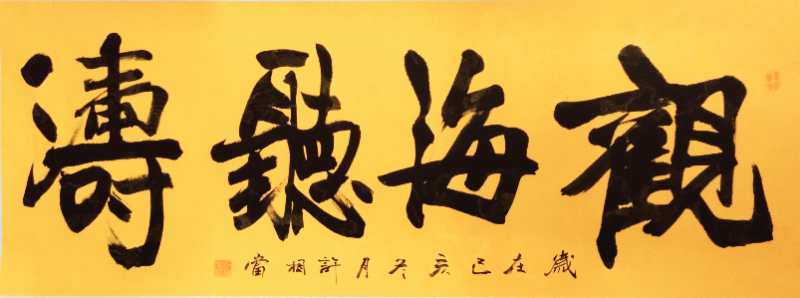 觀海聽濤
歲在己亥冬月許桐當